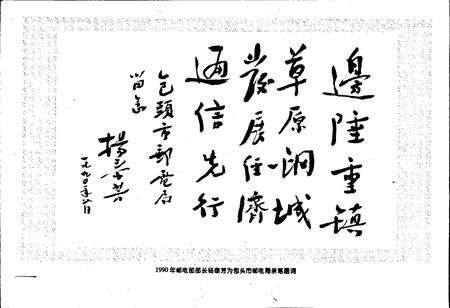 邊陲重鎮
草原鋼城
發展经濟
通信先行
包頭市郵電局
留念
楊泰芳
一九九〇年 月
1990年邮电部部长杨泰芳为包头市邮电局亲笔题词